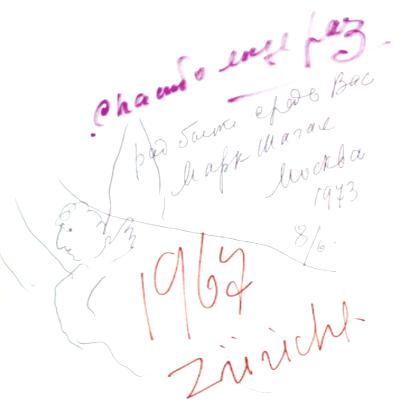 Спасибо еще раз.
рад быть среди Вас
Марк Шагал
Москва
1973
8/6.
1967
Zürich.